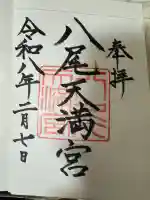 奉拝
八尾天満宮
令和八年二月七日